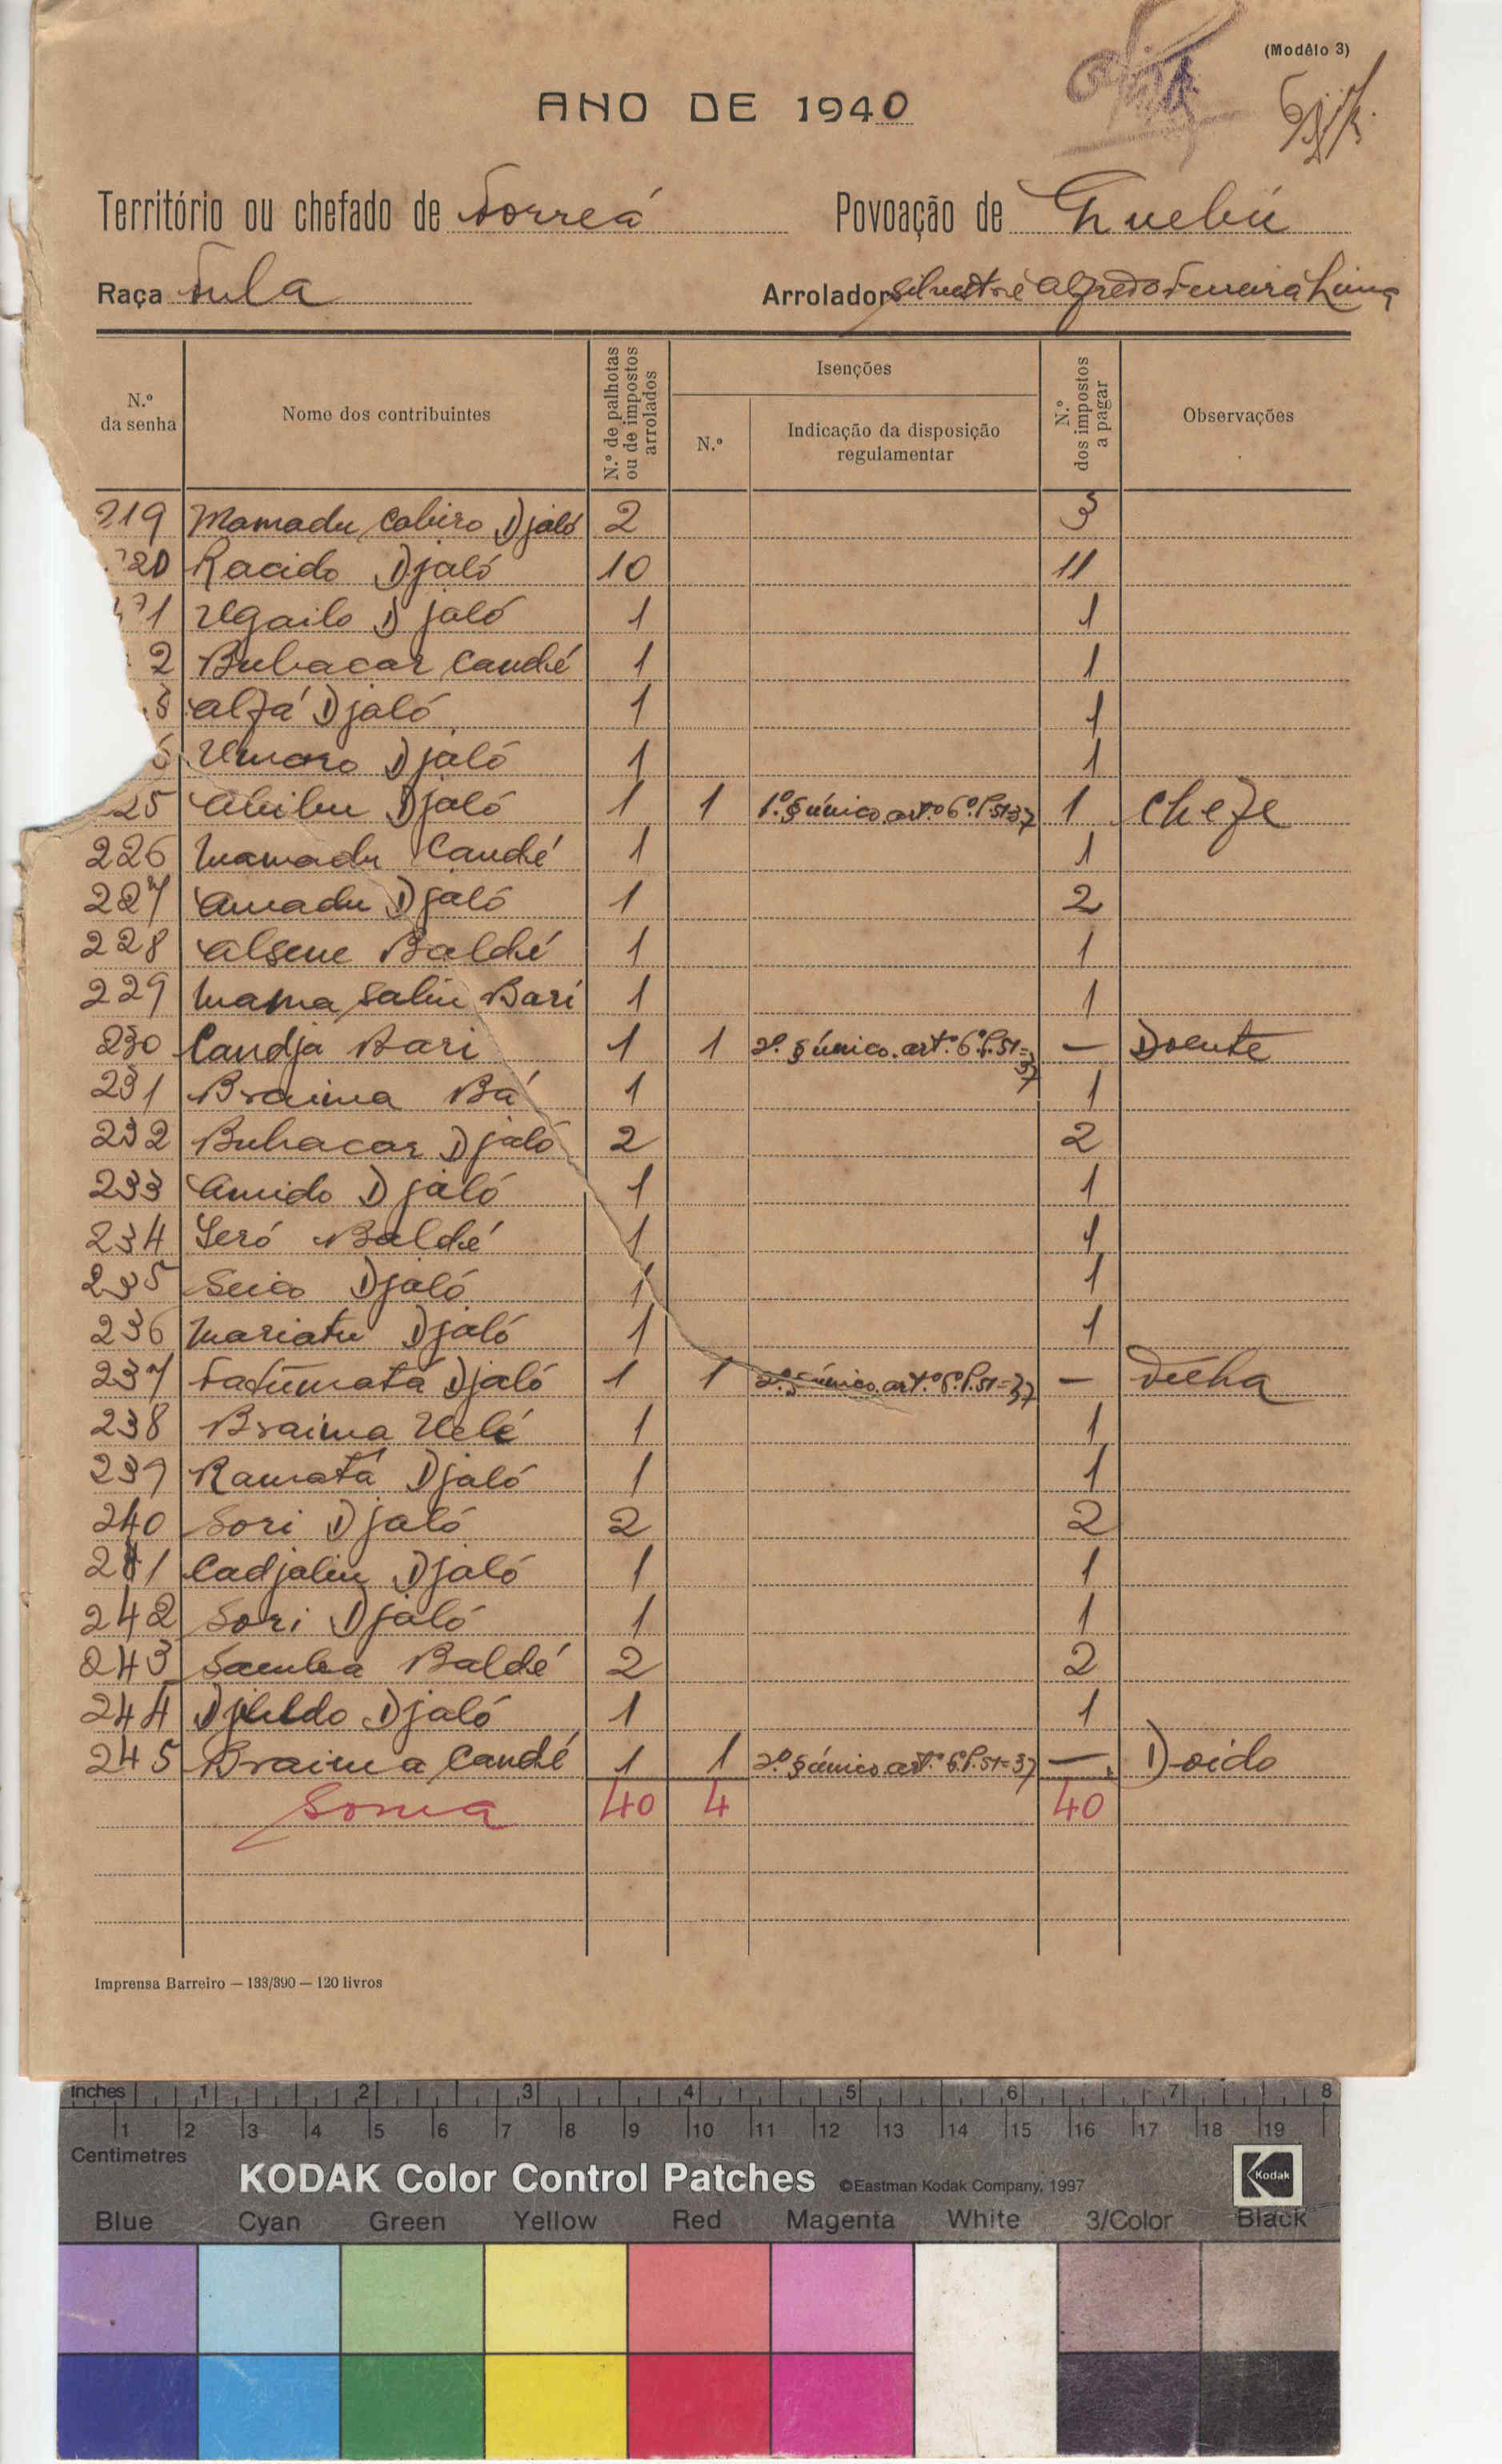 (Modêlo 3)
ANO DE 1940
Território ou chefado de Forreá Povoação de Guebú
Raça Fula Arrolador Silvestre Alfredo Ferreira Lima
N.º da senha
Nome dos contribuintes
N.º de palhotas ou de impostos arrolados
Isenções
N.º
Indicação da disposição regulamentar
N.º dos impostos a pagar
Observações
219 Mamadu Cobiro Djaló 2 3
20 Racido Djaló 10 11
1 Ugailo Djaló 1 1
2 Bubacar Candé 1 1
3 Alfá Djaló 1 1
Umaro Djaló 1 1
25 Abibu Djaló 1 1 1.º § único art.º 6.º P. 51=37 1 Chefe
226 Mamadu Candé 1 1
227 Amadu Djaló 1 2
228 Alsene Baldé 1 1
229 Mama Saliu Bari 1 1
230 Candja Bari 1 1 2.º § único art.º 6.º P. 51=37 — Doente
231 Braima Bá 1 1
232 Bubacar Djaló 2 2
233 Amido Djaló 1 1
234 Seró Baldé 1 1
235 Seico Djaló 1 1
236 Mariatu Djaló 1 1
237 Fatumata Djaló 1 1 2.º § único art.º 6.º P. 51=37 — Velha
238 Braima Uelé 1 1
239 Ramatá Djaló 1 1
240 Sori Djaló 2 2
241 Cadjaliu Djaló 1 1
242 Sori Djaló 1 1
243 Samba Baldé 2 2
244 Djeldo Djaló 1 1
245 Braima Candé 1 1 2.º § único art.º 6.º P. 51=37 — Doido
Soma 40 4 40
Imprensa Barreiro — 133/390 — 120 livros
Inches 1 2 3 4 5 6 7 8
1 2 3 4 5 6 7 8 9 10 11 12 13 14 15 16 17 18 19
Centimetres
KODAK Color Control Patches ©Eastman Kodak Company, 1997 Kodak
Blue Cyan Green Yellow Red Magenta White 3/Color Black